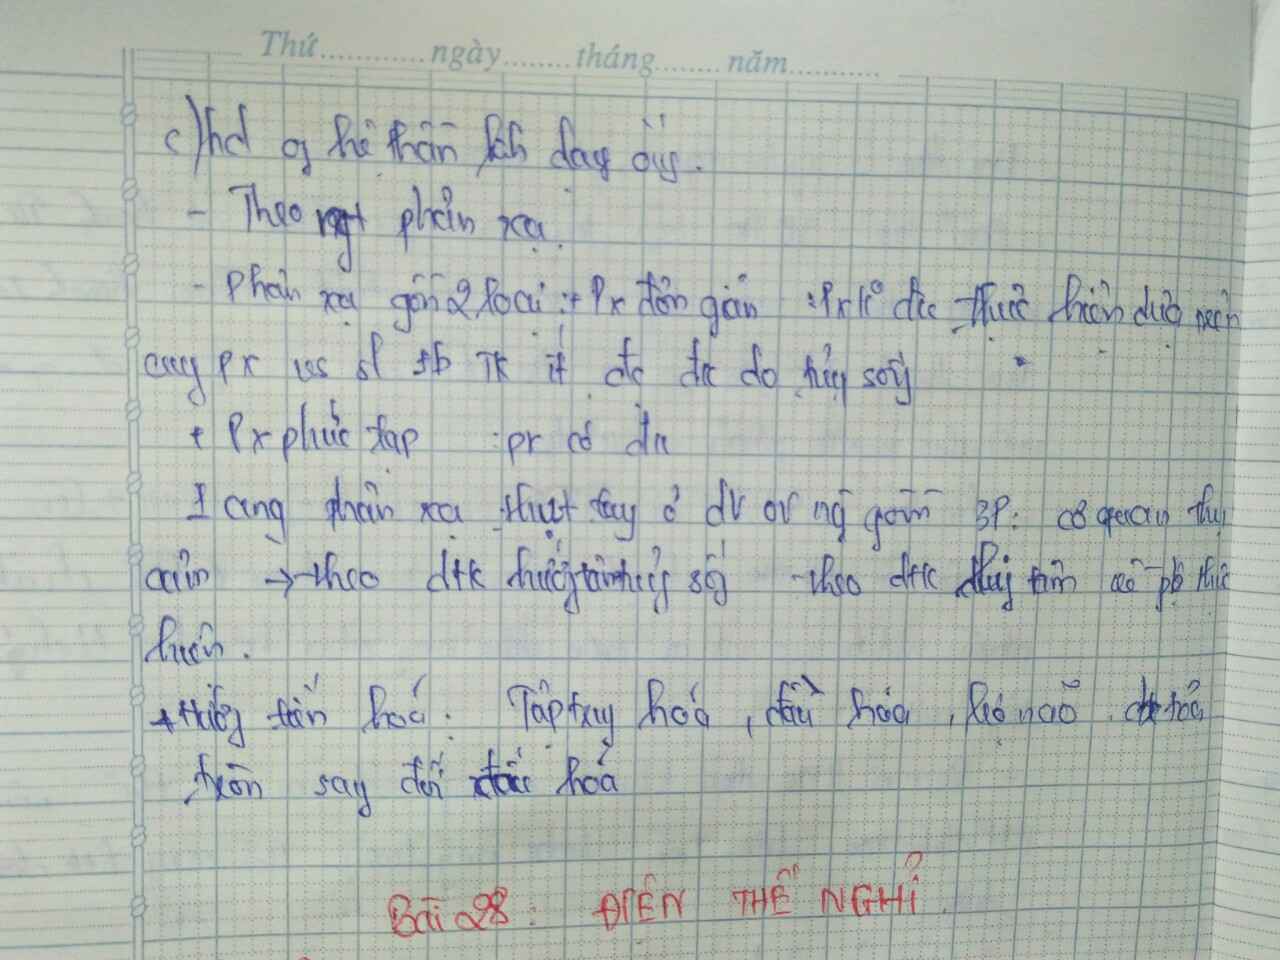 Thứ............ngày........tháng........năm...........
c) hđ of hệ thần kinh dạng ống.
- Theo ngt phản xạ.
- Phản xạ gồm 2 loại: + Px đơn giản : Px k° đk thực hiện
cung px vs sl tb TK ít đc đk do tủy sống
+ Px phức tạp : px có đk
1 cung phản xạ thụt tay ở dv ng gồm 3P: cơ quan thụ
cảm → theo dtk hướng tâm tủy sống theo dtk ly tâm pb thức
luôn.
+ Hướng tiến hoá: Tập trung hoá, đầu hóa, não
hoá
Bài 28: ĐIỆN THẾ NGHỈ